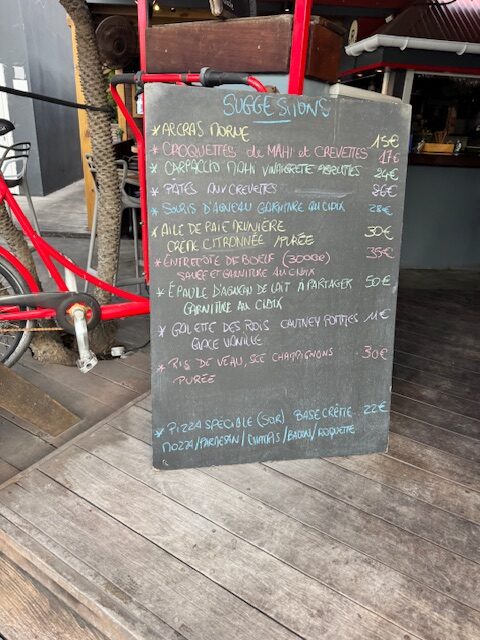 SUGGESTIONS
* ACCRAS MORUE 15€
* CROQUETTES de MAHI et CREVETTES 17€
* CARPACCIO MAHI VINAIGRETTE 24€
* PATES AUX CREVETTES 26€
* SOURIS D'AGNEAU GARNITURE AU CHOIX 28€
* AILE DE RAIE MEUNIÈRE 30€
CRÈME CITRONNÉE / PURÉE
* ENTRECOTE DE BOEUF (300GR) 35€
SAUCE ET GARNITURE AU CHOIX
* ÉPAULE D'AGNEAU DE LAIT À PARTAGER 50€
GARNITURE AU CHOIX
* GALETTE DES ROIS CHUTNEY POMMES 11€
GLACE VANILLE
* RIS DE VEAU, SCE CHAMPIGNONS 30€
PURÉE
* PIZZA SPECIALE (SOIR) BASE CRÈME 22€
MOZZA/PARMESAN/CHAMPIS/BACON/ROQUETTE